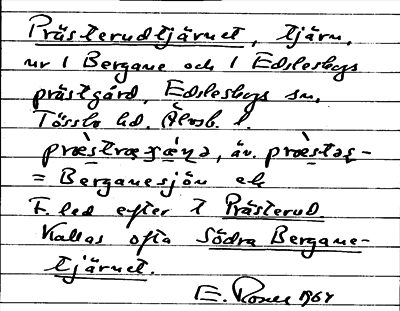 Prästerudtjärnet, tjärn,
nr 1 Bergane och 1 Edsleskogs
prästgård, Edsleskogs sn,
Tössbo hd. Älvsb. l.
præ̀stræʒǽŋə, äv. præ̀stəʂ-
= Berganesjön
F. led efter t Prästerud
Kallas ofta Södra Bergane-
tjärnet.
E. Rosell 1964